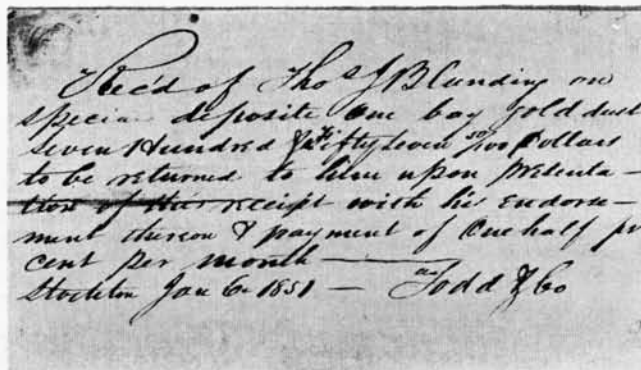 Rec'd of Thos J Blunding on
special deposite One bag gold dust
Seven Hundred & Fifty seven 50/100 Dollars
to be returned to him upon presenta-
tion of this receipt with his Endorse-
ment thereon & payment of One half pr
cent per month —
Stockton Jan 6. 1851 — Todd & Co